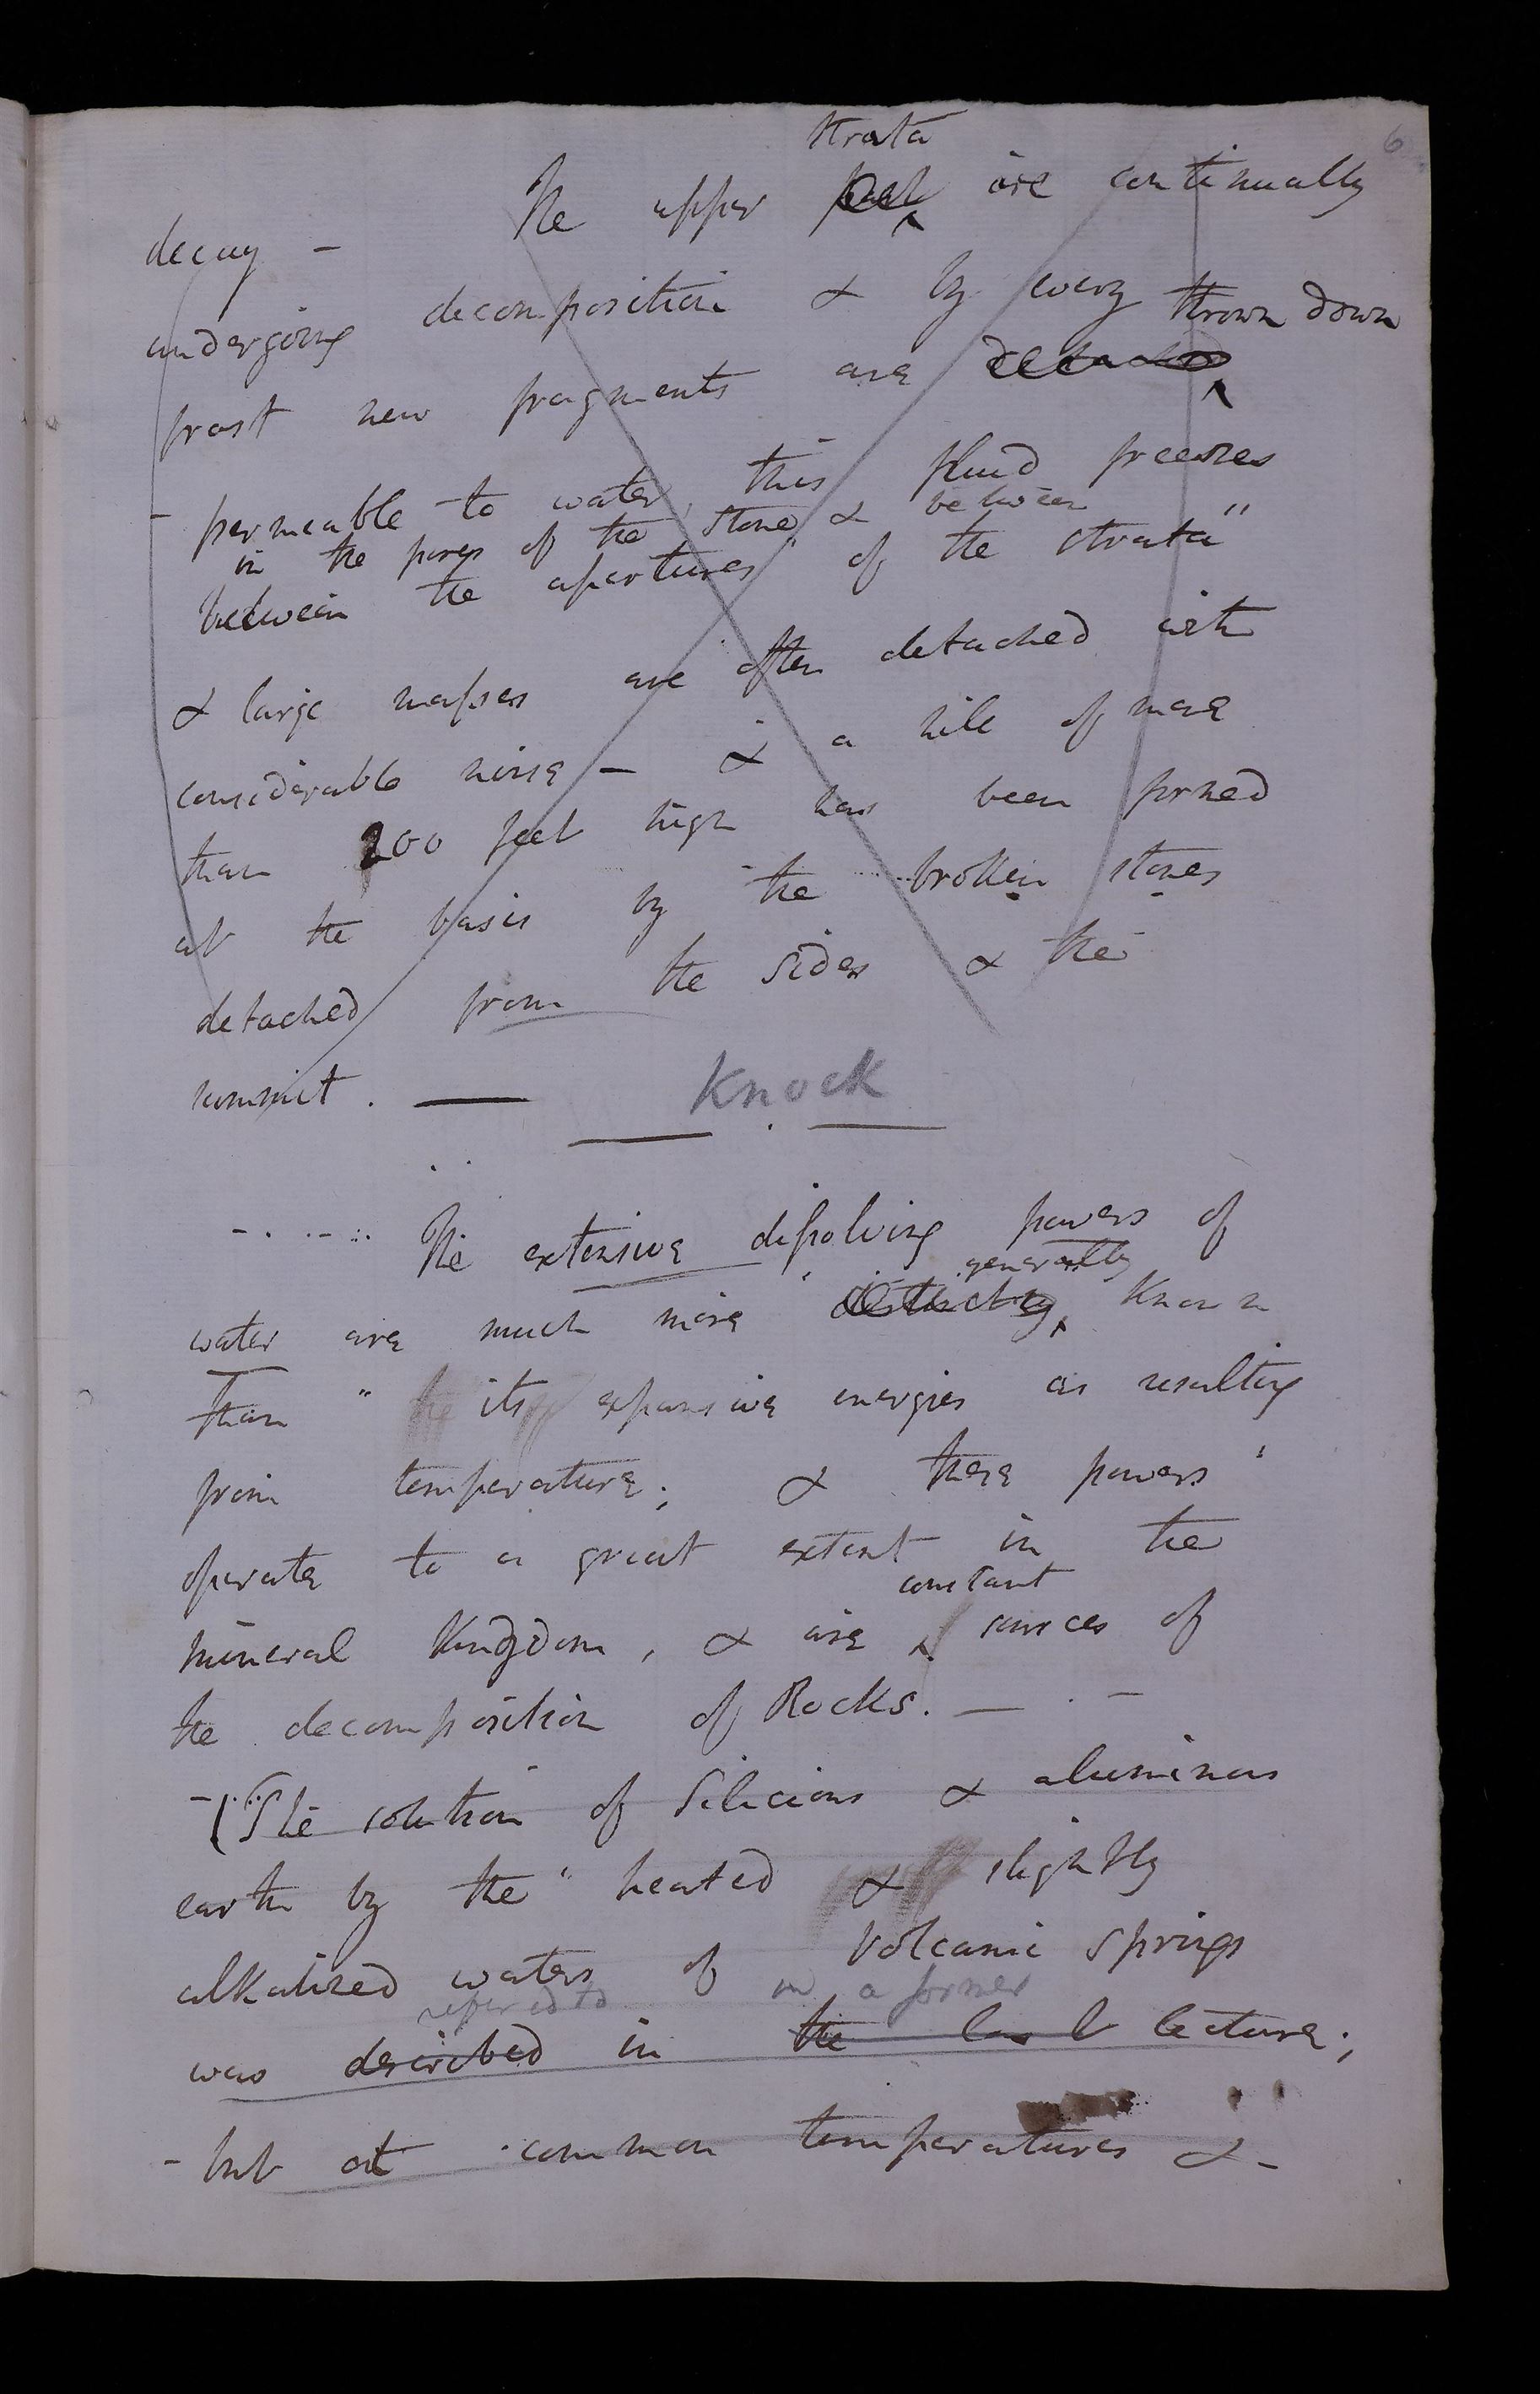 6
strata
The upper part are continually
decay –
undergoing decomposition & by every thrown down
frost new fragments are detached
– permeable to water, this fluid freezes
in the pores of the stone & between
between the apertures of the strata
& large masses are often detached with
considerable noise – & a hill of more
than 200 feet high has been formed
at the basis by the broken stones
detached from the sides & the
summit. —
Knock
The extensive dissolving powers of
generally
water are much more distinctly known
than its expansive energies as resulting
from temperature; & these powers
operate to a great extent in the
constant
mineral Kingdom, & are sources of
the decomposition of Rocks. —
– (The solution of Silicious & aluminous
earth by the heated & slightly
alkalised waters of Volcanic Springs
refered to in a former
was described in the last lecture;
– but at common temperatures &